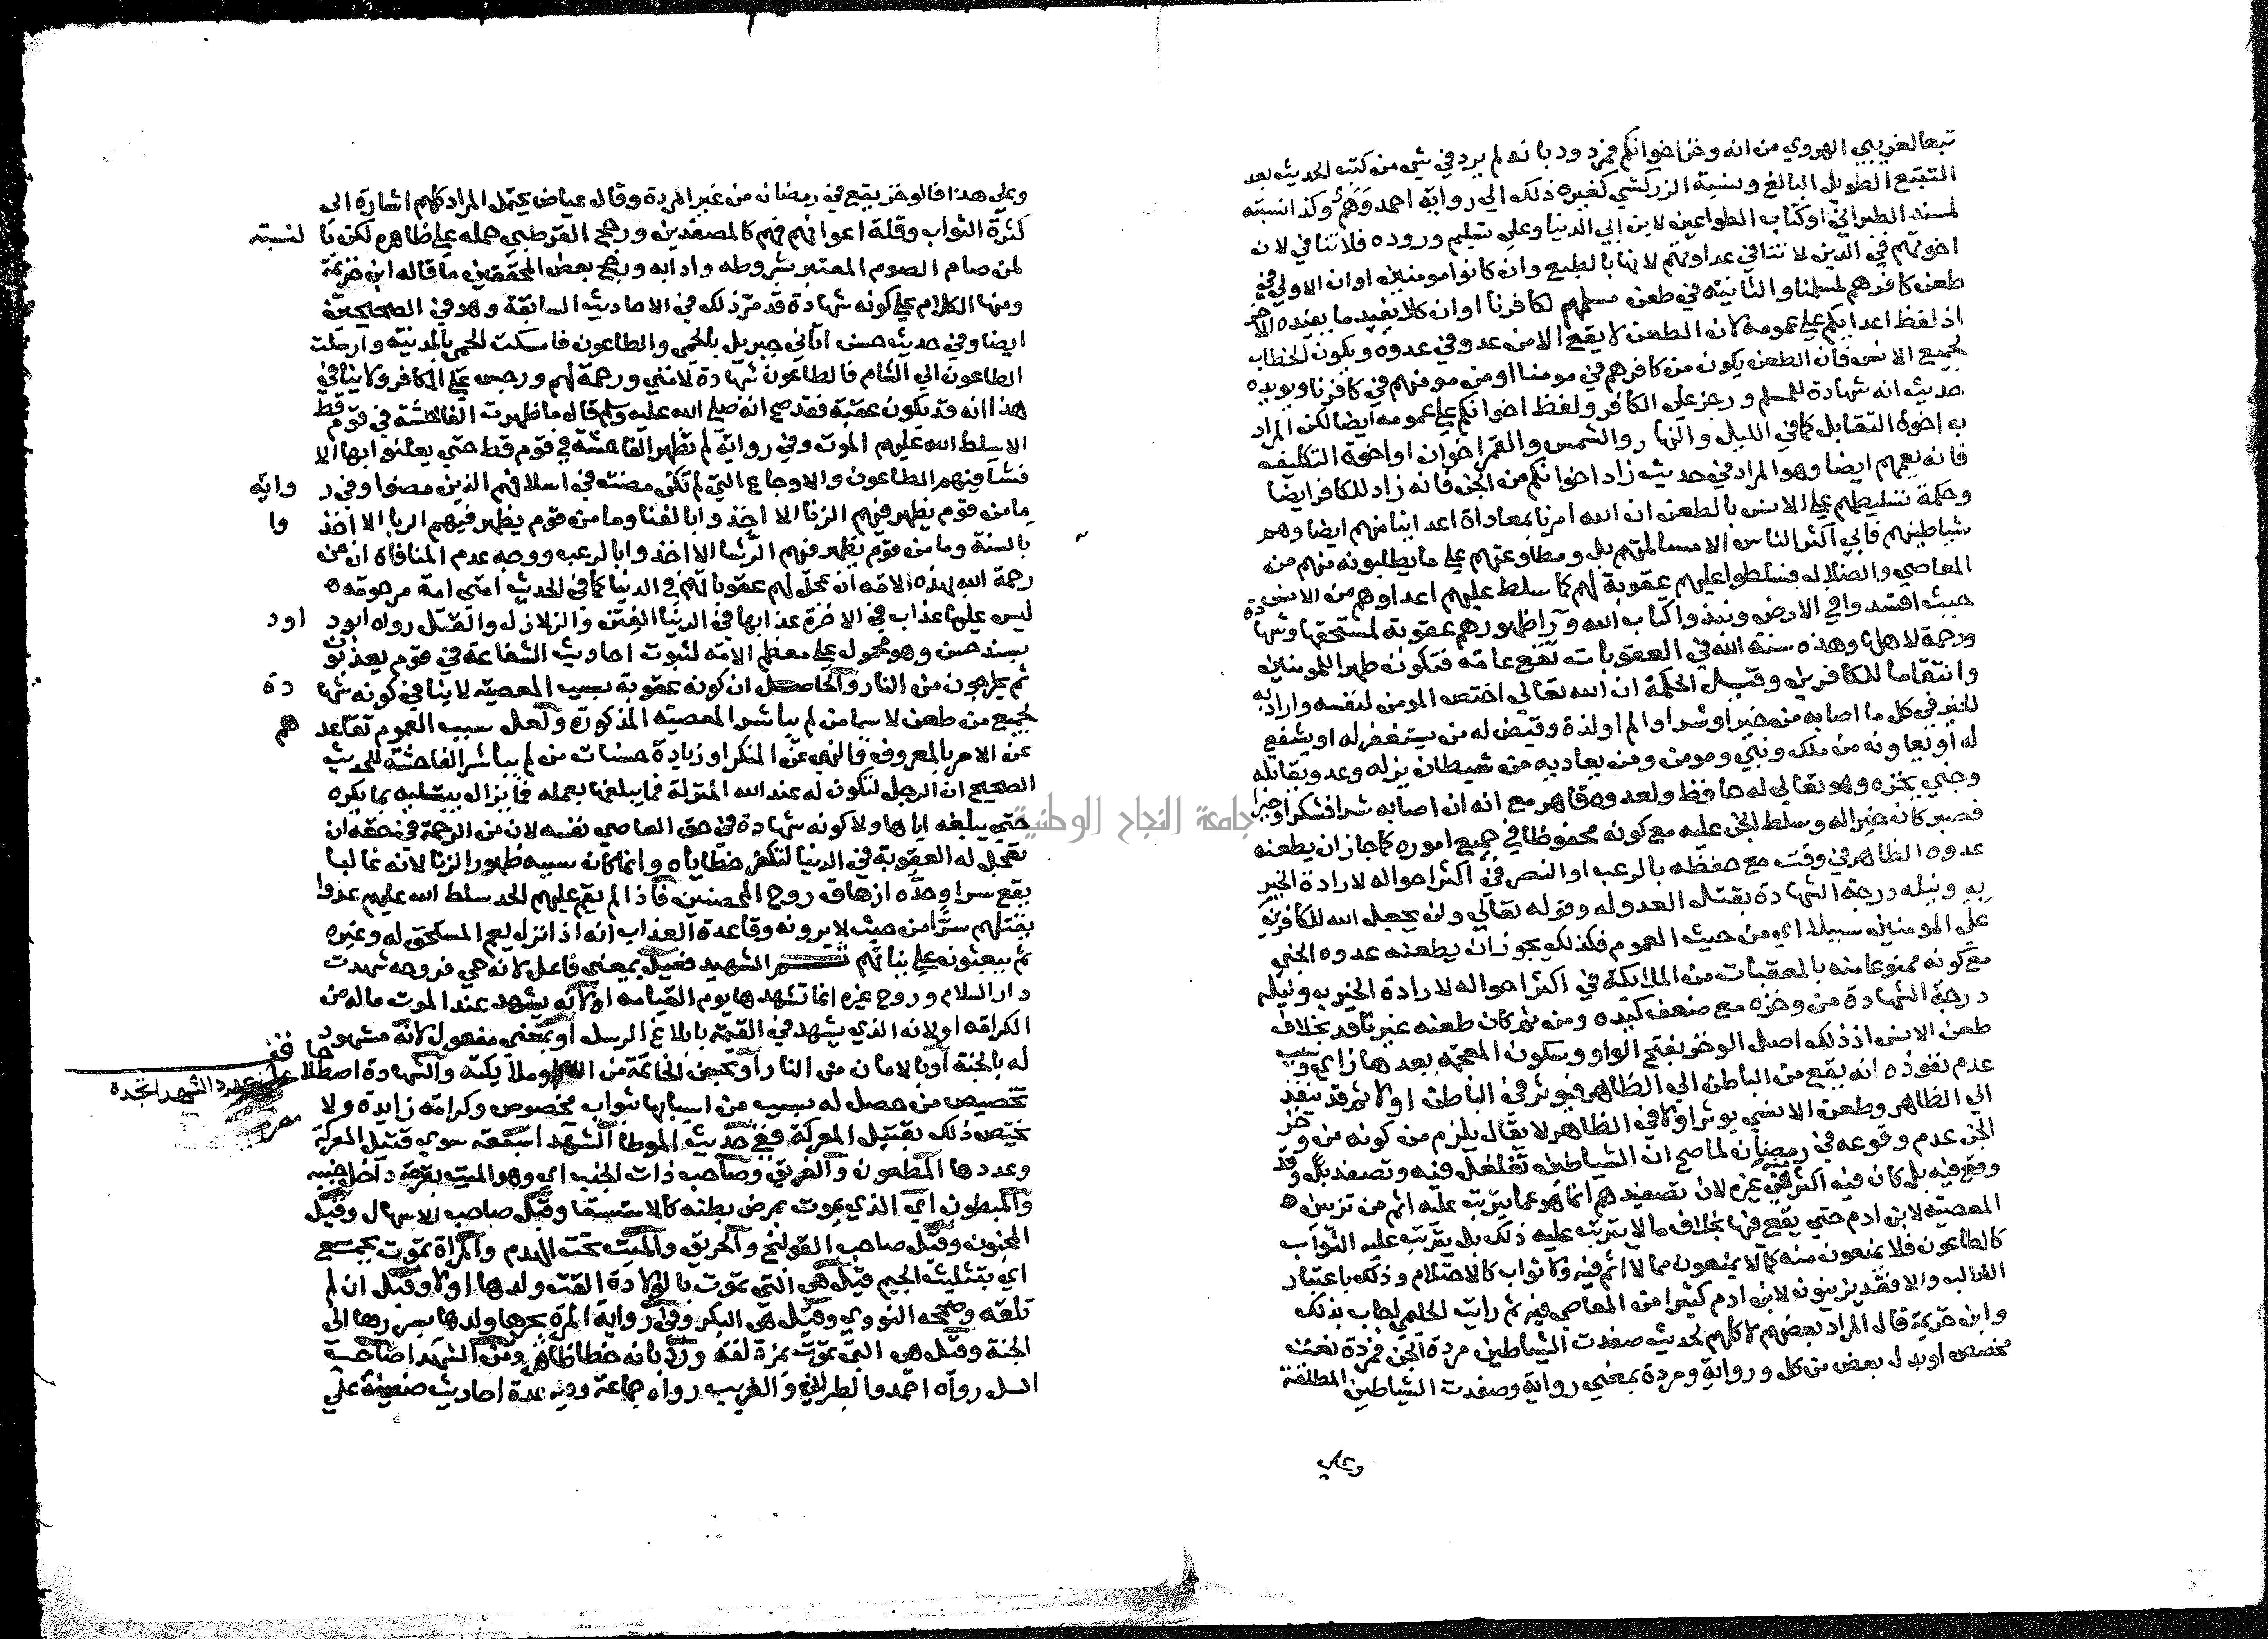 تبعا لغريبي الهروي من انه وخز اخوانكم فمردود بانه لم يرد في شي من كتب الحديث بعد
التتبع الطويل البالغ ونسبة الزركشي كغيره ذلك الي رواية احمد وهم وكذا نسبته
لمسند الطبراني او كتاب الطواعين لابن ابي الدنيا وعلي تسليم وروده فلا تنافي لان
اخوتهم في الدين لا تنافي عداوتهم لانها بالطبع وان كانوا مومنين او ان الاولي في
طعن كافرهم لمسلمنا والثانية في طعن مسلمهم لكافرنا او ان كلا يفيد ما يفيده الاخر
اذ لفظ اعدايكم علي عمومه لان الطعن لا يقع الا من عدو في عدوه ويكون الخطاب
لجميع الانس فان الطعن يكون من كافرهم في مومننا او من مومنهم في كافرنا ويويده
حديث انه شهادة للمسلم ورجز علي الكافر ولفظ اخوانكم علي عمومه ايضا لكن المراد
به اخوة التقابل كما في الليل والنهار والشمس والقمر اخوان او اخوة التكليف
فانه يعمهم ايضا وهو المراد في حديث زاد اخوانكم من الجن فانه زاد للكافر ايضا
وحكمة تسليطهم علي الانس بالطعن ان الله امرنا بمعاداة اعداينا منهم ايضا وهم
شياطينهم فابي اكثر الناس الا مسالمتهم بل ومطاوعتهم علي ما يطلبونه منهم من
المعاصي والضلالة فسلطوا عليهم عقوبة لهم كما سلط عليهم اعداوهم من الانس
حيث افسدوا في الارض ونبذوا كتاب الله ورا ظهورهم عقوبة لمستحقها وشهادة
ورحمة لاهلها وهذه سنة الله في العقوبات تقع عامة فتكون طهرا للمومنين
وانتقاما للكافرين وقيل الحكمة ان الله تعالي اختص المومن لنفسه واراد به
الخير في كل ما اصابه من خير او شر او الم او لذة وقيض له من يستغفر له او يشفع
له او يعاونه من ملك ونبي ومومن ومن يعاديه من شيطان يزله وعدو يقاتله
وجني يخزه وهو تعالي له حافظ ولعدوه قاهر مع انه ان اصابه شر افشكر او خير
فصبر كان خيرا له وسلط الجن عليه مع كونه محفوظا في جميع اموره كما جاز ان يطعنه
عدوه الظاهر في وقت مع حفظه بالرعب او النصر في اكثر احواله لارادة الخير
به ونيله درجة الشهادة بقتل العدو له وقوله تعالي ولن يجعل الله للكافرين
علي المومنين سبيلا اي من حيث العموم فكذلك يجوز ان يطعنه عدوه الجني
مع كونه ممنوعا منه بالمعقبات من الملايكة في اكثر احواله لارادة الخير به ونيله
درجة الشهادة من وخزه مع ضعف كيده ومن ثم كان طعنه غير نافذ بخلاف
طعن الانس اذ ذلك اصل الوخز بفتح الواو وسكون المعجمة بعدها زاي وسبب
عدم نفوذه انه يقع من الباطن الي الظاهر فيوثر في الباطن اولا ثم قد ينفذ
الي الظاهر وطعن الانسي يوثر اولا في الظاهر لا يقال يلزم من كونه من وخز
الجن عدم وقوعه في رمضان لما صح ان الشياطين تغلغل فيه وتصفد بل وقد
وقع فيه بل كان فيه اكثر من غيره لان تصفيدهم انما هو عما يترتب عليه اثم من تزيين
المعصية لابن ادم حتي يقع فيها بخلاف ما لا يترتب عليه ذلك بل يترتب عليه الثواب
كالطاعون فلا يمنعون منه كما لا يمنعون مما لا اثم فيه ولا ثواب كالاحتلام وذلك باعتبار
الغالب والا فقد يزينون لابن ادم كثيرا من المعاصي فيه ثم رايت الحليمي اجاب بذلك
وابن خزيمة قال المراد بعضهم لا كلهم لحديث صفدت الشياطين مردة الجن فمردة نعت
مخصص او بدل بعض من كل ورواية ومردة بمعني رواية وصفدت الشياطين المطلقة
وعلي
وعلي هذا فالوخز يقع في رمضان من غير المردة وقال عياض يحتمل المراد كلهم اشارة الي
كثرة الثواب وقلة اغوائهم فهم كالمصفدين ورجح القرطبي حمله علي ظاهره لكن بالنسبة
لمن صام الصوم المعتبر بشروطه وادابه ورجح بعض المحققين ما قاله ابن خزيمة
ومنها الكلام علي كونه شهادة قد مر ذلك في الاحاديث السابقة وهو في الصحيحين
ايضا وفي حديث حسن اتاني جبريل بالحمي والطاعون فامسكت الحمي بالمدينة وارسلت
الطاعون الي الشام فالطاعون شهادة لامتي ورحمة لهم ورجس علي الكافر ولا ينافي
هذا انه قد يكون عقوبة فقد صح انه صلي الله عليه وسلم قال ما ظهرت الفاحشة في قوم قط
الا سلط الله عليهم الموت وفي رواية لم تظهر الفاحشة في قوم قط حتي يعلنوا بها الا
فشا فيهم الطاعون والاوجاع التي لم تكن مضت في اسلافهم الذين مضوا وفي رواية
ما من قوم يظهر فيهم الزنا الا اخذوا بالفنا وما من قوم يظهر فيهم الربا الا اخذوا
بالسنة وما من قوم يظهر فيهم الرشا الا اخذوا بالرعب ووجه عدم المنافاة ان من
رحمة الله لهذه الامة ان عجل لهم عقوباتهم في الدنيا كما في الحديث امتي امة مرحومة
ليس عليها عذاب في الاخرة عذابها في الدنيا الفتن والزلازل والقتل رواه ابو داود
بسند حسن وهو محمول علي معظم الامة لثبوت احاديث الشفاعة في قوم يعذبون
ثم يخرجون من النار والحاصل ان كونه عقوبة بسبب المعصية لا ينافي كونه شهادة
لجميع من طعن لا سيما من لم يباشر المعصية المذكورة ولعل سبب العموم تقاعدهم
عن الامر بالمعروف والنهي عن المنكر او زيادة حسنات من لم يباشر الفاحشة للحديث
الصحيح ان الرجل لتكون له عند الله المنزلة فما يبلغها بعمله فما يزال يبتليه بما يكره
حتي يبلغه اياها ولا كونه شهادة في حق العاصي نفسه لان من الرحمة في حقه ان
تعجل له العقوبة في الدنيا لتكفر خطاياه وانما كان سببه ظهور الزنا لانه غالبا
يقع سرا وحده ازهاق روح المحصنين فاذا لم يقم عليهم الحد سلط الله عليهم عدوا
يقتلهم سرا من حيث لا يرونه وقاعدة العذاب انه اذا نزل يعم المستحق له وغيره
ثم يبعثون علي نياتهم الشهيد فعيل بمعني فاعل لانه حي فروحه شهدت
دار السلام وروح غيره انما تشهدها يوم القيامة او لانه يشهد عند الموت ما له من
الكرامة او لانه الذي يشهد في القيمة بابلاغ الرسل او بمعني مفعول لانه مشهود
له بالجنة او بالامان من النار او بحسن الخاتمة من الله وملايكته والشهادة اصطلاحا
عدد الشهداء
تخصيص من حصل له بسبب من اسبابها بثواب مخصوص وكرامة زايدة ولا
يختص ذلك بقتيل المعركة ففي حديث الموطا الشهدا سبعة سوي قتيل المعركة
وعددها المطعون والغريق وصاحب ذات الجنب اي وهو الميت بقرحة داخل جنبه
والمبطون اي الذي يموت بمرض بطنه كالاستسقا وقيل صاحب الاسهال وقيل
المجنون وقيل صاحب القولنج والحريق والميت تحت الهدم والمراة تموت بجمع
اي بتثليث الجيم قيل هي التي تموت بالولادة القت ولدها اولا وقيل ان لم
تلقه وصححه النووي وقيل هي البكر وفي رواية المراة يجرها ولدها بسررها الي
الجنة وقيل هي التي تموت بمزدلفة ورد بانه خطا ظاهر ومن الشهدا صاحب
السل رواه احمد والطبراني والغريب رواه جماعة وفيه عدة احاديث ضعيفة علي
جامعة النجاح الوطنية